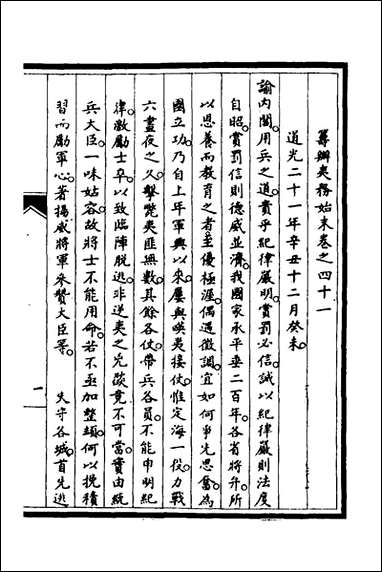 籌辦夷務始末卷之四十一
道光二十一年辛丑十二月癸未
諭內閣用兵之道貴乎紀律嚴明賞罰必信誠以紀律嚴則法度
自昭賞罰信則德威並濟我國家承平垂二百年各省將弁所
以恩養而教育之者至優極渥偶遇徵調宜如何爭先思奮為
國立功乃自上年軍興以來屢與㗎夷接仗惟定海一役力戰
六晝夜之久擊斃夷匪無數其餘各仗帶兵各員不能申明紀
律激勵士卒以致臨陣脫逃非逆夷之兇燄竟不可當實由統
兵大臣一味姑容故將士不能用命若不亟加整頓何以挽積
習而勵軍心著揚威將軍參贊大臣等
失守各城首先逃
一